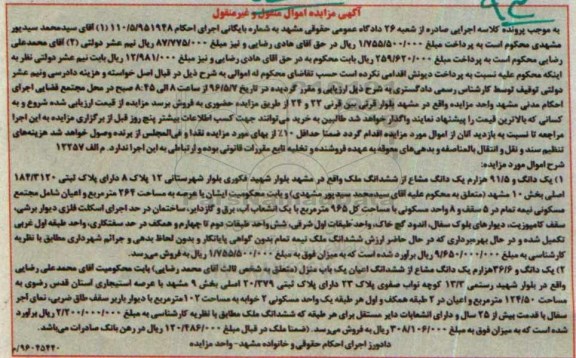 آگهی مزایده اموال منقول و غیرمنقول
به موجب پرونده کلاسه اجرایی صادره از شعبه ۲۶ دادگاه عمومی حقوقی مشهد به شماره بایگانی اجرای احکام ۱۱۰/۵/۹۵۱۹۴۸ (۱) آقای سیدمحمد سیدپور
مشهدی محکوم است به پرداخت مبلغ ۱/۷۵۵/۵۰۰/۰۰۰ ریال در حق آقای هادی رضایی و نیز مبلغ ۸۷/۷۷۵/۰۰۰ ریال نیم عشر دولتی (۲) آقای محمدعلی
رضایی محکوم است به پرداخت مبلغ ۲۵۹/۶۲۰/۰۰۰ ریال بابت محکوم به در حق آقای هادی رضایی و نیز مبلغ ۱۲/۹۸۱/۰۰۰ ریال بابت نیم عشر دولتی نظر به
اینکه محکوم علیه نسبت به پرداخت دیونش اقدامی نکرده است حسب تقاضای محکوم له اموالی به شرح ذیل در قبال اصل خواسته و هزینه دادرسی ونیم عشر
دولتی توقیف توسط کارشناس رسمی دادگستری به شرح ذیل ارزیابی و مقرر گردیده در تاریخ ۹۶/۵/۷ از ساعت ۸ الی ۸:۴۵ صبح در محل مجتمع قضایی اجرای
احکام مدنی مشهد واحد مزایده واقع در مشهد بلوار قرنی بین قرنی ۲۲ و ۲۴ از طریق مزایده حضوری به فروش برسد مزایده از قیمت ارزیابی شده شروع و به
کسانی که بالاترین قیمت را پیشنهاد نمایند واگذار خواهد شد طالبین به خرید می‌توانند جهت کسب اطلاعات بیشتر پنج روز قبل از برگزاری مزایده به این اجرا
مراجعه تا نسبت به بازدید اتان از اموال مورد مزایده اقدام گردد ضمنا حداقل ۱۰٪ از بهای مورد مزایده نقدا و فی‌المجلس از برنده وصول خواهد شد هزینه‌های
تنظیم سند و نقل و انتقال بالمناصفه و بدهی‌های معوقه به عهده فروشنده و تخلیه تابع مقررات قانونی بوده و ارتباطی به این اجرا ندارد. م الف ۱۲۲۵۷
شرح اموال مورد مزایده:
۱) یک دانگ و ۹۱/۵ هزارم یک دانگ مشاع از ششدانگ ملک واقع در مشهد بلوار شهید فکوری بلوار شهرستانی ۱۲ پلاک ۸ دارای پلاک ثبتی ۱۸۴/۳۱۲۰
اصلی بخش ۱۰ مشهد (متعلق به محکوم علیه آقای سیدمحمد سیدپور مشهدی) و بابت محکومیت ایشان با عرصه به مساحت ۲۶۴ مترمربع و اعیان شامل مجتمع
مسکونی نیمه تمام در ۵ سقف و ۸ واحد مسکونی با مساحت کل ۹۶۵ مترمربع با یک انشعاب آب، برق و گازدایر، ساختمان در حد اجرای اسکلت فلزی دیوار برشی،
سقف کامپوزیت، دیوارهای بلوک سفال، اندود گچ خاک، واحد طبقات اول شرقی، شش واحد طبقات دوم تا چهارم و همکف در حد سفتکاری، واحد طبقه اول غربی
تکمیل شده و در حال بهره‌برداری که در حال حاضر ارزش ششدانگ ملک نیمه تمام بدون گواهی پایانکار و بدون لحاظ بدهی و جرائم شهرداری مطابق با نظریه
کارشناسی به مبلغ ۹/۶۵۰/۰۰۰/۰۰۰ ریال برآورد شده است که به میزان فوق به مبلغ ۱/۷۵۵/۵۰۰/۰۰۰ ریال به فروش می‌رسد.
۲) یک دانگ و ۳۶/۶هزارم یک دانگ مشاع از ششدانگ اعیان یک باب منزل (متعلق به شخص ثالث آقای محمد رضایی) بابت محکومیت آقای محمدعلی رضایی
واقع در بلوار شهید رستمی ۱۲/۳ کوچه نواب صفوی پلاک ۲۳ دارای پلاک ثبتی ۲۰/۳۷۹ اصلی بخش ۹ مشهد با عرصه استیجاری آستان قدس رضوی به
مساحت ۱۲۴/۵۰ مترمربع و اعیان در ۲ طبقه همکف و اول هر طبقه یک واحد مسکونی ۲ خوابه به مساحت ۱۰۲مترمربع با دیوار باربر سقف طاق ضربی، نمای آجر
سفال با قدمت بیش از ۲۵ سال و دارای انشعابات دایر مستقل برای هر طبقه که ششدانگ ملک مطابق با نظریه کارشناسی به مبلغ ۲/۲۰۰/۰۰۰/۰۰۰ ریال برآورد
شده است که به میزان فوق به مبلغ ۳۰۸/۱۰۶/۰۰۰ ریال به فروش می‌رسد. (ضمنا ملک در قبال مبلغ ۱۲۰/۴۸۶/۰۰۰ ریال در رهن بانک صادرات می‌باشد.
دادورز اجرای احکام حقوقی و خانواده مشهد- واحد مزایده
۹۶۰۴۵۴۴۰/م